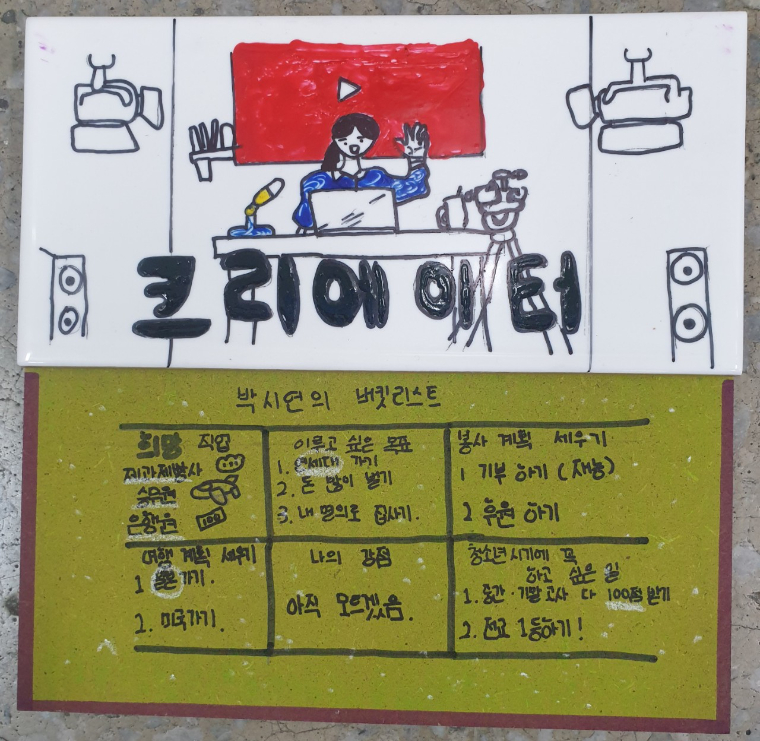 크리에이터
박시연의 버킷리스트
희망 직업
제과제빵사
승무원
은행원
이루고 싶은 목표
1. 연세대 가기
2. 돈 많이 벌기
3. 내 명의로 집사기.
봉사 계획 세우기
1 기부 하기 (재능)
2 후원 하기
여행 계획 세우기
1 가기.
2. 미국가기.
나의 강점
아직 모르겠음.
청소년시기에 꼭
하고 싶은 일
1. 중간·기말고사 다 100점 받기
2. 전교 1등하기!